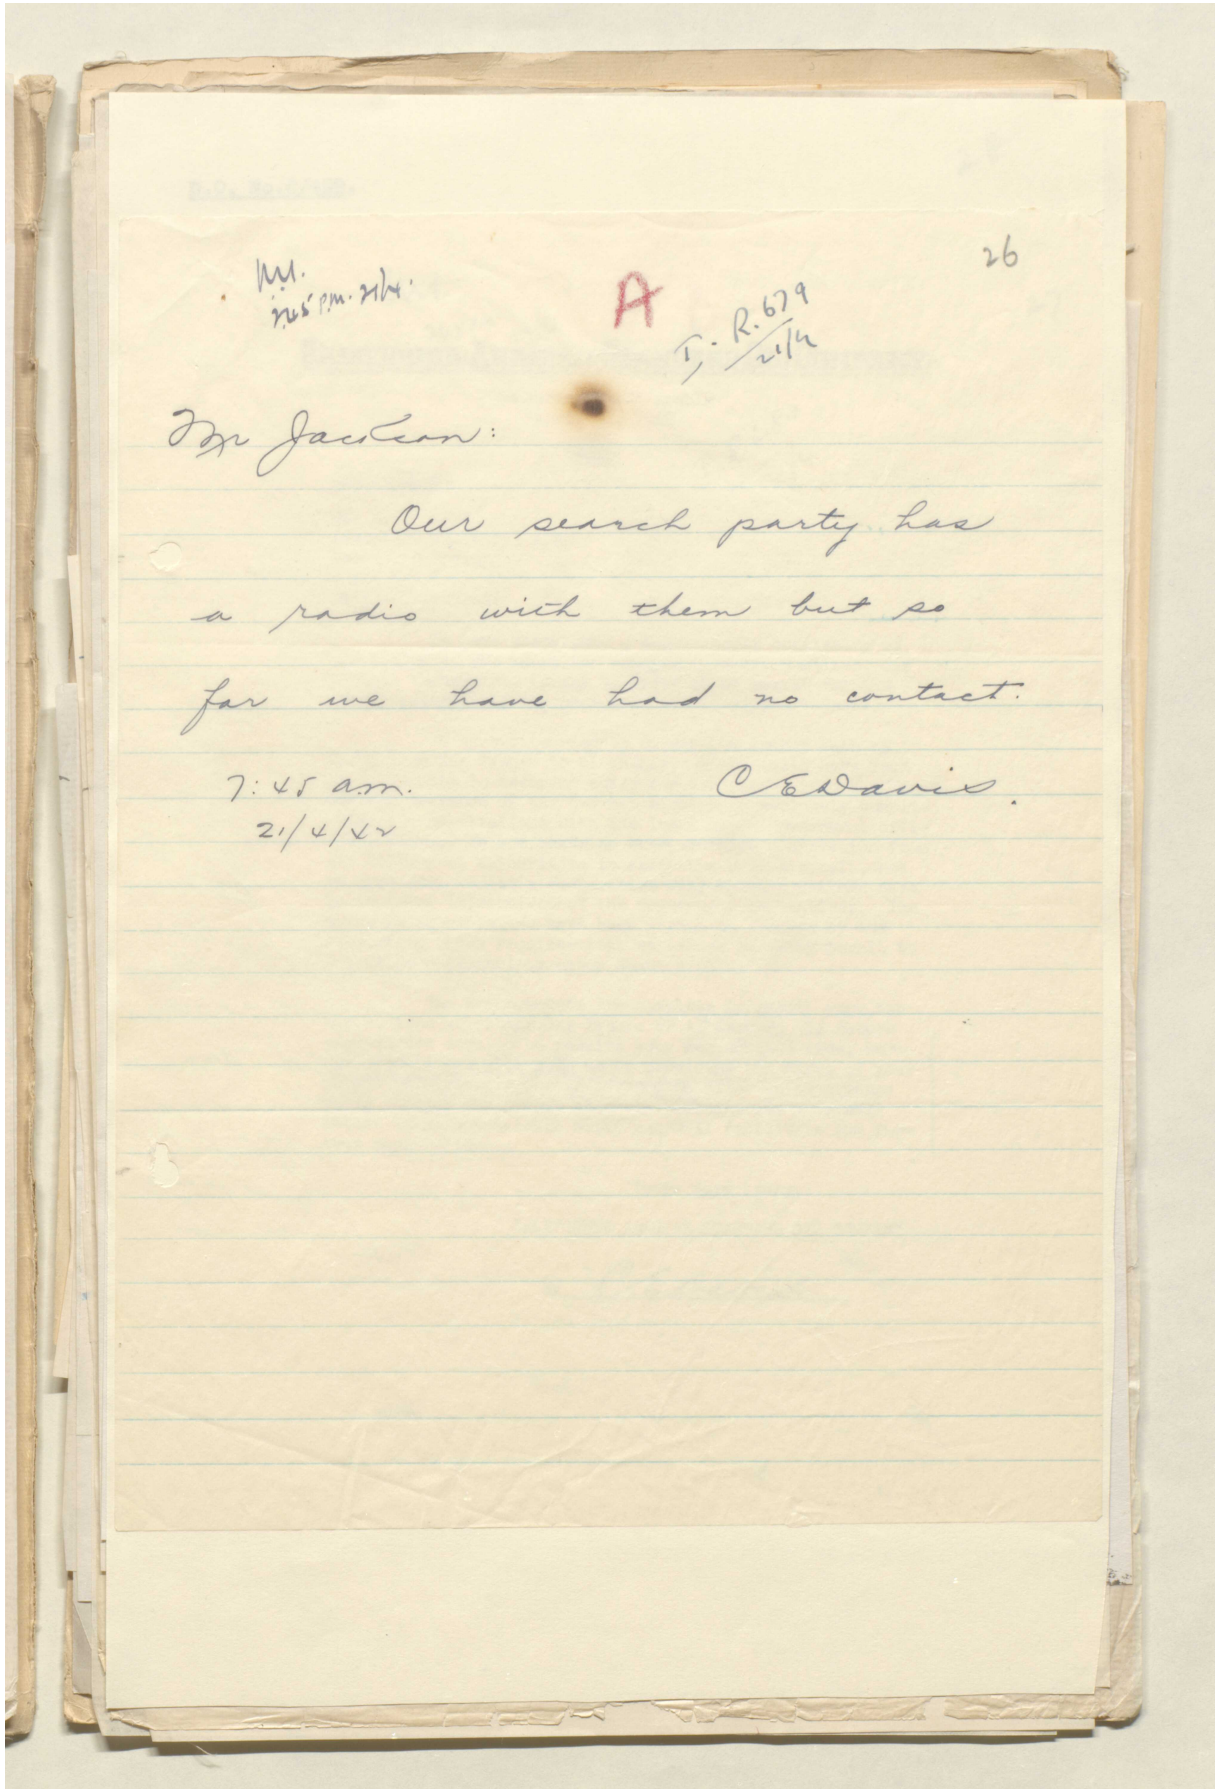 26
2.45 P.M. 21/4.
A
I, R. 679
21/4
Mr Jackson:
Our search party has
a radio with them but so
far we have had no contact.
7:45 a.m.
C E Davis.
21/4/42